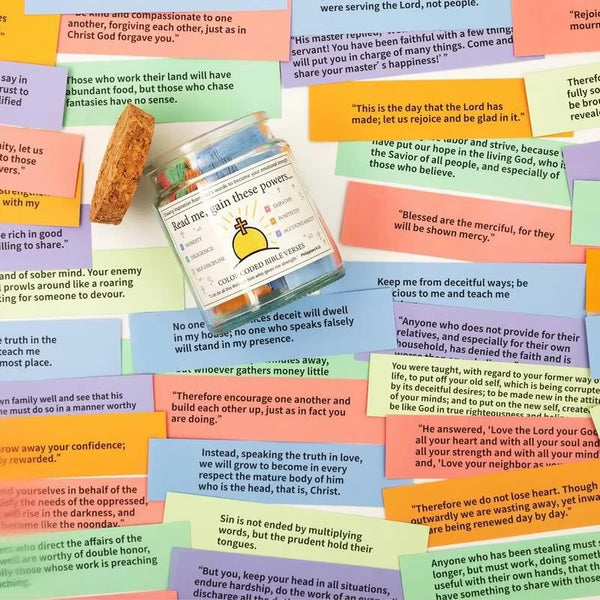 Be kind and compassionate to one
another, forgiving each other, just as in
Christ God forgave you."
were serving the Lord, not people.
"His master replied,
servant! You have been faithful with a few things
will put you in charge of many things. Come and
share your master's happiness!'"
"Rejoi
mourn
say in
rust to
lified
Those who work their land will have
abundant food, but those who chase
fantasies have no sense.
"This is the day that the Lord has
made; let us rejoice and be glad in it."
Therefo
fully so
be brou
reveale
nity, let us
to those
vers."
labor and strive, because
have put our hope in the living God, who is
the Savior of all people, and especially of
those who believe.
with my
Read me, gain these powers...
HONESTY
DILIGENCE
SELF-DISCIPLINE
EMPATHY
POSITIVITY
ACCOUNTABILITY
COLOR-CODED BIBLE VERSES
"Blessed are the merciful, for they
will be shown mercy."
be rich in good
illing to share."
and of sober mind. Your enemy
prowls around like a roaring
king for someone to devour.
Keep me from deceitful ways; be
cious to me and teach me
No one
ices deceit will dwell
in my house; no one who speaks falsely
will stand in my presence.
"Anyone who does not provide for their
relatives, and especially for their own
household, has denied the faith and is
e truth in the
teach me
most place.
but whoever gathers money little
You were taught, with regard to your former way of
life, to put off your old self, which is being corrupted
by its deceitful desires; to be made new in the attitude
of your minds; and to put on the new self, create
be like God in true righteousness and
wn family well and see that his
ne must do so in a manner worthy
"Therefore encourage one another and
build each other up, just as in fact you
are doing."
"He answered, 'Love the Lord your God
all your heart and with all your soul and
all your strength and with all your mind
and, 'Love your neighbor as
hrow away your confidence;
ly rewarded."
Instead, speaking the truth in love,
we will grow to become in every
respect the mature body of him
who is the head, that is, Christ.
nd yourselves in behalf of the
tisfy the needs of the oppressed,
will rise in the darkness, and
become like the noonday."
"Therefore we do not lose heart. Though
outwardly we are wasting away, yet inwa
are being renewed day by day."
Sin is not ended by multiplying
words, but the prudent hold their
tongues.
ers who direct the affairs of the
well are worthy of double honor,
ially those whose work is preaching
Anyone who has been stealing must s
longer, but must work, doing someth
useful with their own hands, that th
have something to share with those
"But you, keep your head in all situations,
endure hardship, do the work of an
discharge all the